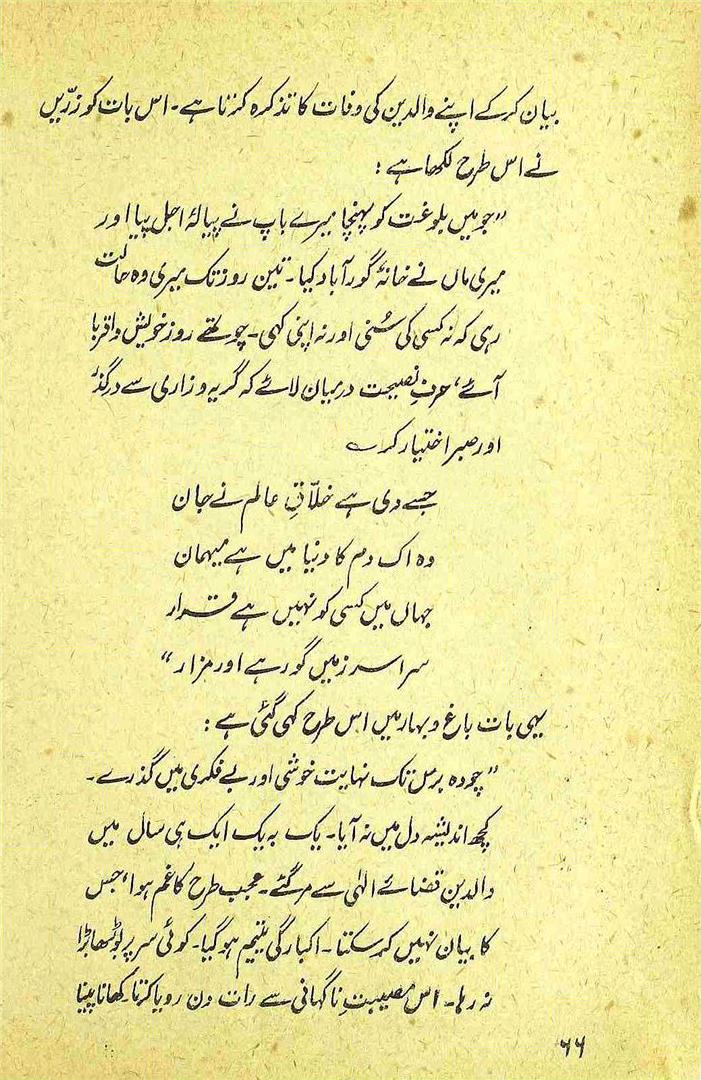 بیان کر کے اپنے والدین کی وفات کا تذکرہ کرتا ہے۔ اس بات کو زرّیں
نے اس طرح لکھا ہے :
”جو میں بلوغت کو پہنچا میرے باپ نے پیالۂ اجل پیا اور
میری ماں نے خانۂ گور آباد کیا۔ تین روز تک میری وہ حالت
رہی کہ نہ کسی کی سُنی اور نہ اپنی کہی۔ چوتھے روز خویش و اقربا
آئے، حرفِ نصیحت درمیان لائے کہ گریہ و زاری سے درگذر
اور صبر اختیار کر ؎
جسے دی ہے خلّاقِ عالم نے جان
وہ اک دم کا دنیا میں ہے میہمان
جہاں میں کسی کو نہیں ہے قرار
سراسر زمیں گور ہے اور مزار “
یہی بات باغ و بہار میں اس طرح کہی گئی ہے :
”چودہ برس تک نہایت خوشی اور بے فکری میں گذرے۔
کچھ اندیشہ دل میں نہ آیا۔ یک بہ یک ایک ہی سال میں
والدین قضائے الٰہی سے مر گئے۔ عجب طرح کا غم ہوا، جس
کا بیان نہیں کر سکتا۔ اکبارگی یتیم ہو گیا۔ کوئی سر پر بوڑھا بڑا
نہ رہا۔ اس مصیبتِ ناگہانی سے رات دن رویا کرتا۔ کھانا پینا
۶۶